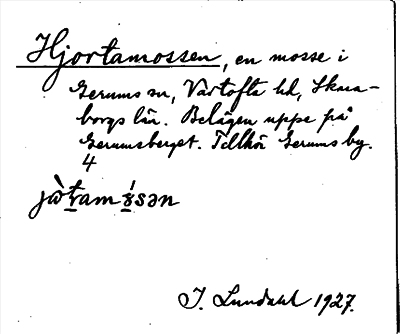 Hjortamossen, en mosse i
Gerums sn, Vartofta hd, Skara-
borgs län. Belägen uppe på
Gerumsberget. Tillhör Gerums by.
4
J. Lundahl 1927.